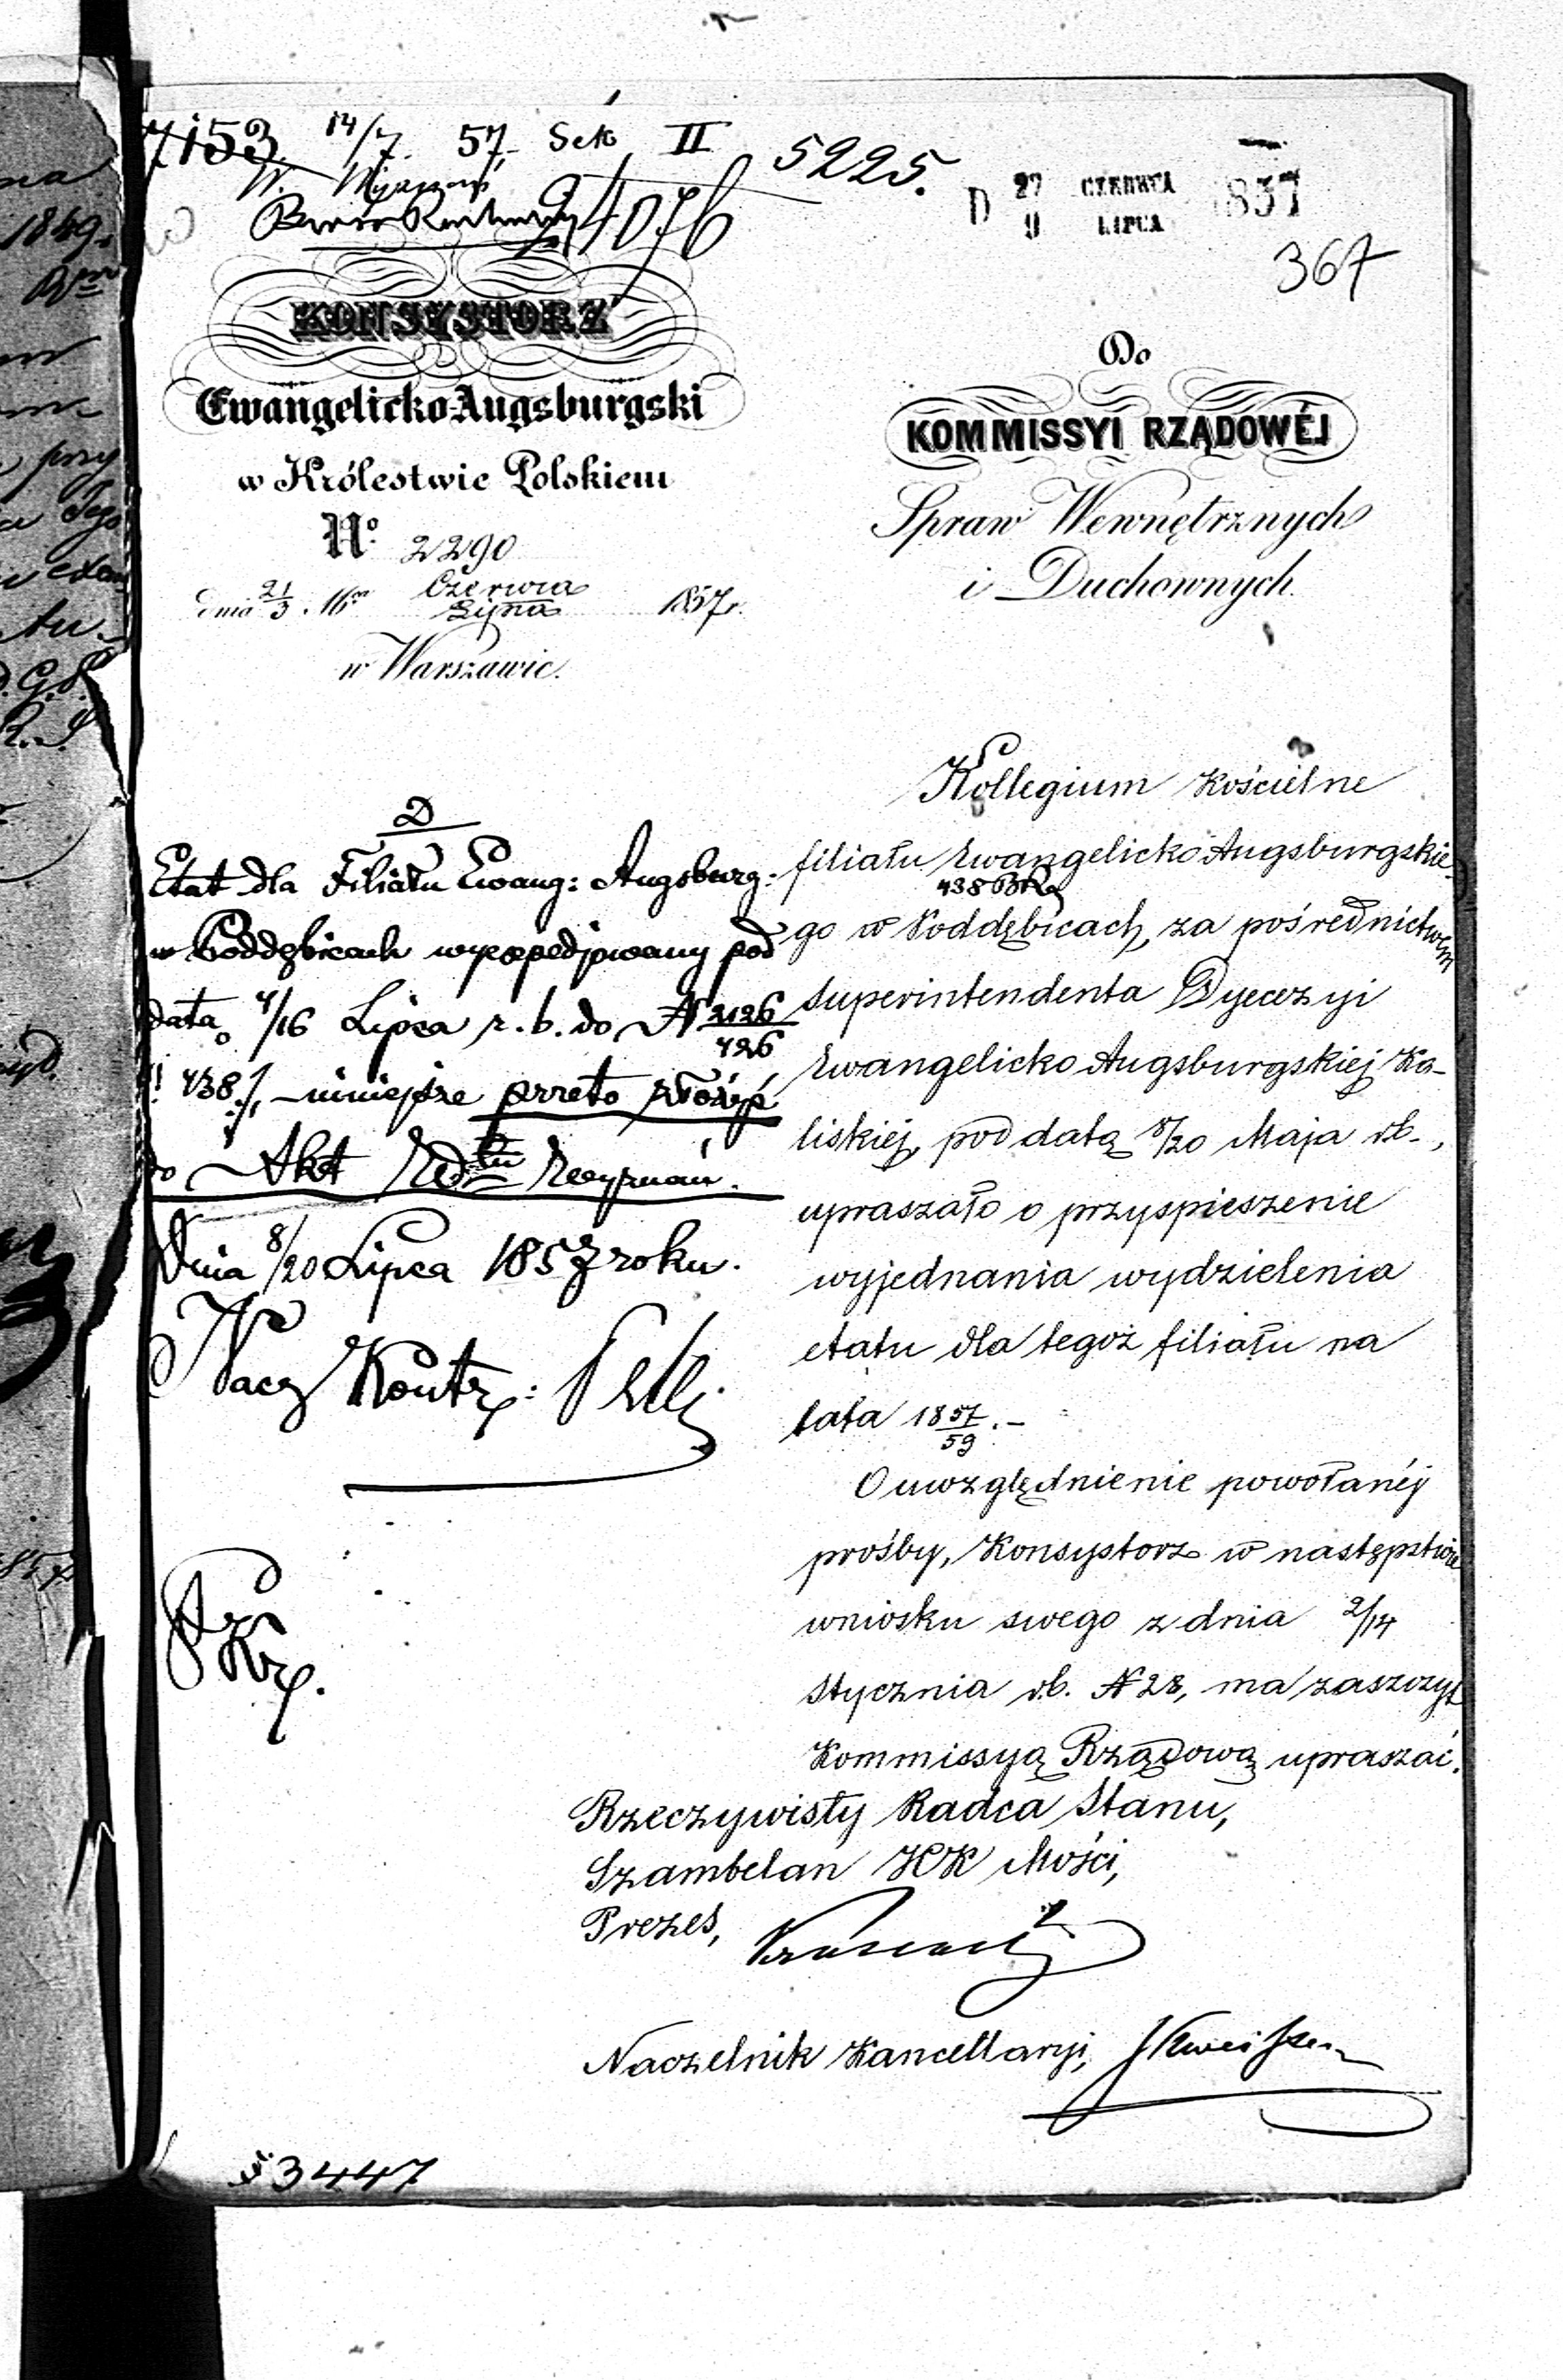 7153 14/7 57 Sek II
5225.
24076
D 27 CZERWCA 1857
9 LIPCA
367
KONSYSTORZ
Ewangelicko-Augsburgski
w Królestwie Polskiem
N° 2290
dnia 21/3 Czerwca
Lipca 1857r.
w Warszawie.
Do
KOMMISSYI RZĄDOWÉJ
Spraw Wewnętrznych
i Duchownych.
D
Etat dla Filiału Ewang: Augsburg:
w Poddębicach wyexpedjowany pod
datą 4/16 Lipca r. b. do N 2126/426
438 /, niniejsze przeto złożyć
do Akt
Dnia 8/20 Lipca 1857 roku.
Nacz Kontr:
Kollegium Kościelne
filiału Ewangelicko Augsburgskie-
438
go w Poddębicach, za pośrednictwem
Superintendenta Dyecezyi
Ewangelicko Augsburgskiej Ka-
liskiéj, pod datą 8/20 Maja r.b.,
upraszało o przyspieszenie
wyjednania wydzielenia
etatu dla tegoż filiału na
lata 1857/59.-
O uwzględnienie powołanéj
prośby, Konsystorz w następstwie
wniosku swego z dnia 2/14
Stycznia r.b. N 28, ma zaszczyt
Kommissyą Rządową upraszać.
Rzeczywisty Radca Stanu,
Szambelan JCK Mości,
Prezes,
Naczelnik Kancellaryi,
3447